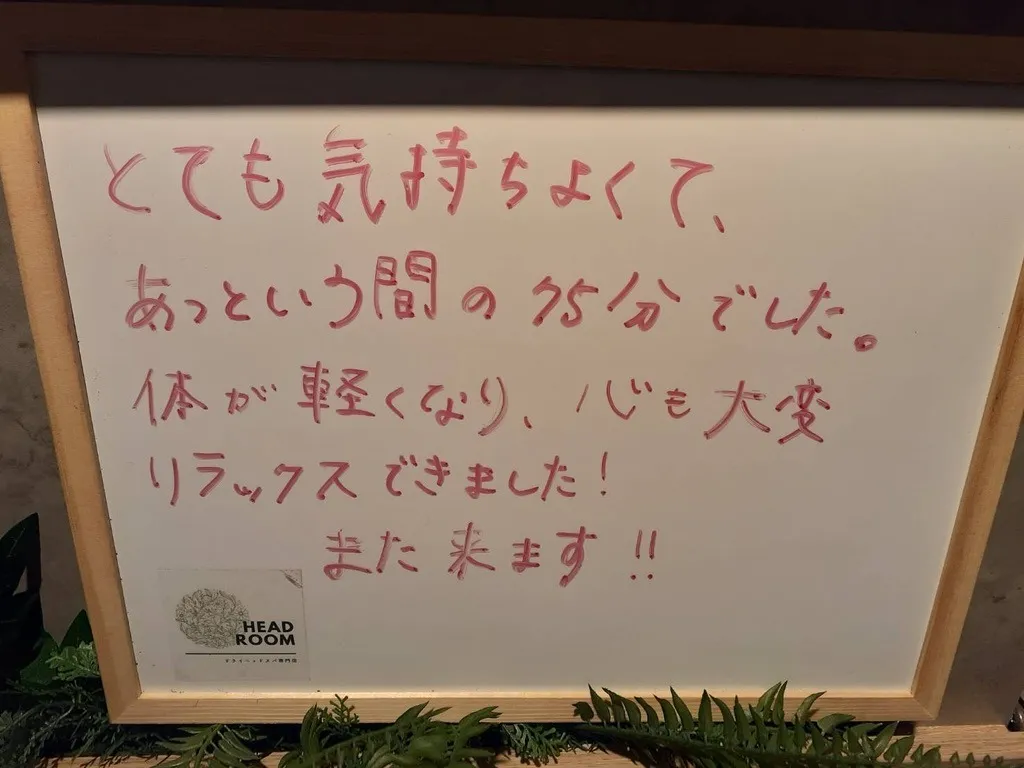 とても気持ちよくて、
あっという間の75分でした。
体が軽くなり、心も大変
リラックスできました!
また来ます!!
HEAD
ROOM
ドライヘッドスパ専門店